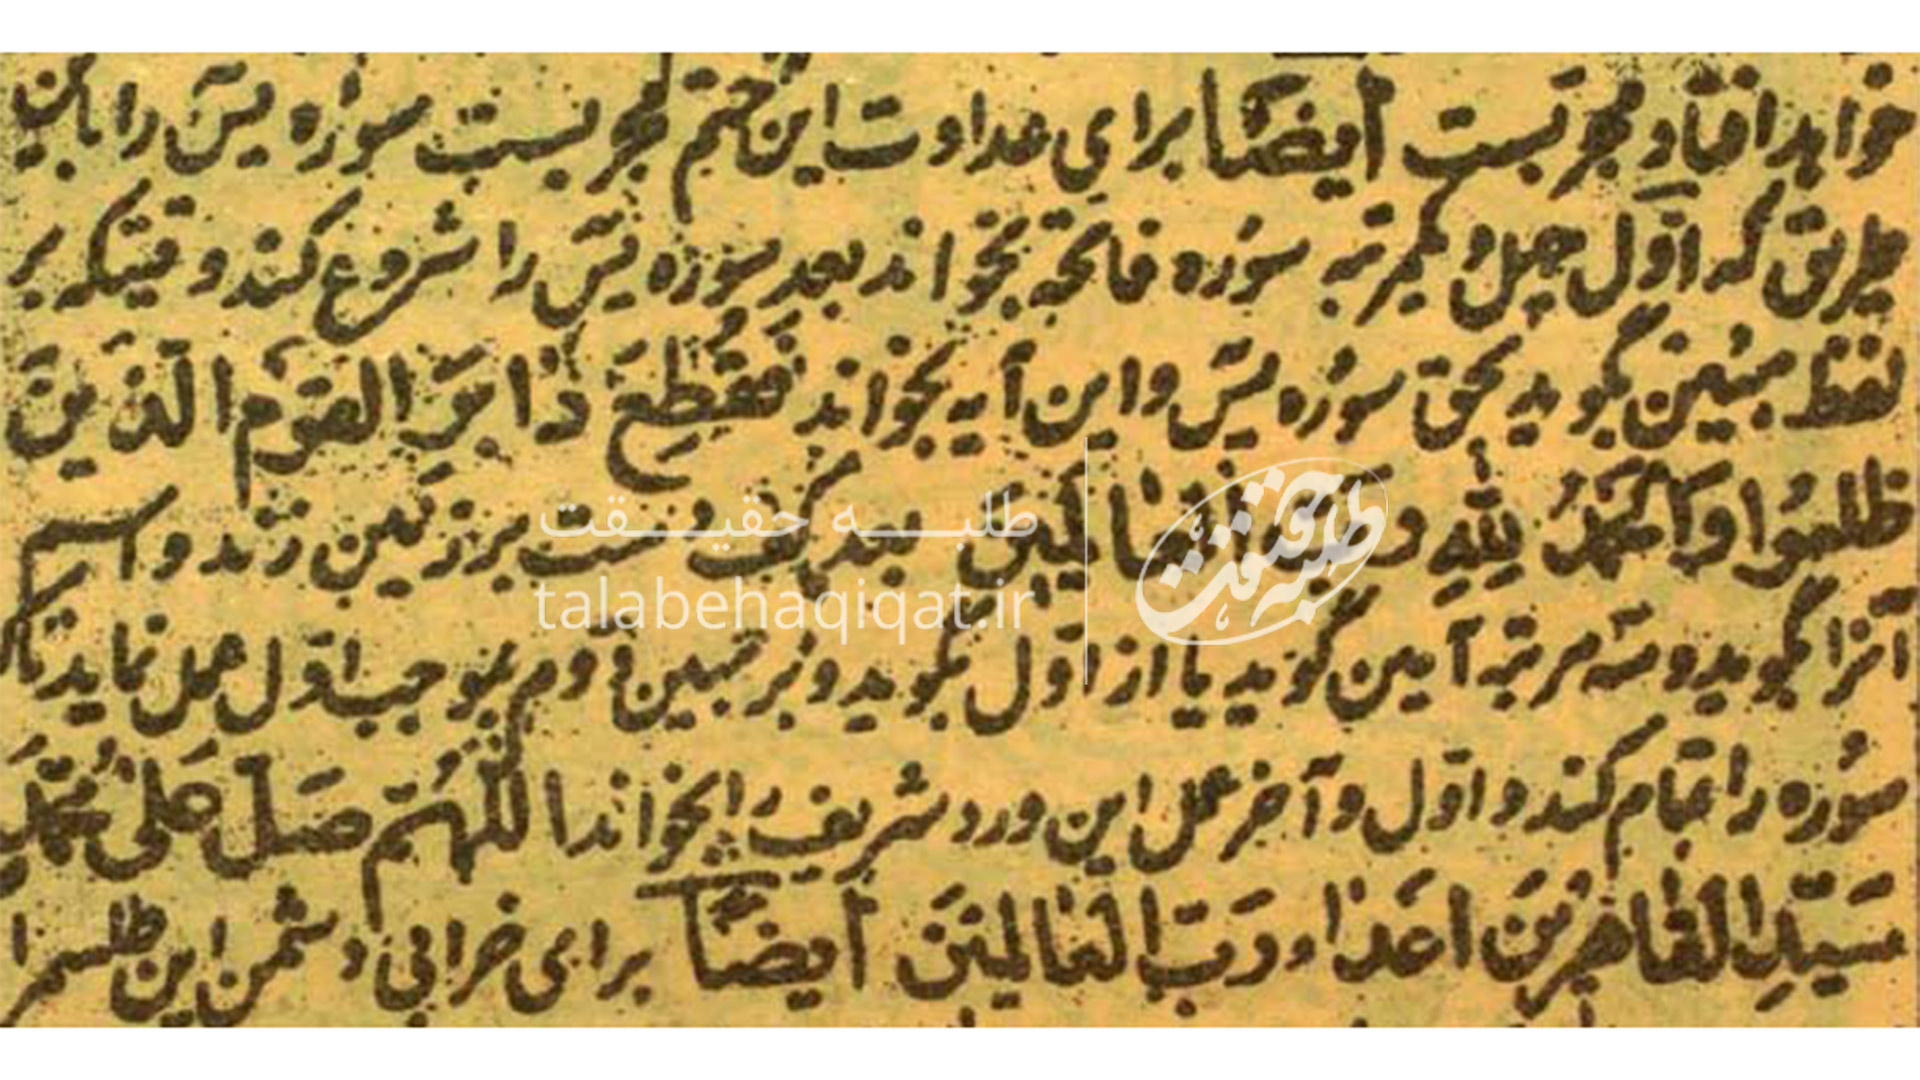 خواهد افتاد مجربست ایضاً برای عداوت این ختم مجربست سوره یٰسٓ را باین
طریق که اوّل چهل و یکمرتبه سوره فاتحة بخواند بعد سوره یٰسٓ را شروع کند و قتیکه بر
لفظ مبین بگوید بحق سوره یٰسٓ و این آیه بخواند فَقُطِعَ دابِرُ القَوْمِ الَّذینَ
ظلمُوا وَالحَمدُ لِلّٰهِ رَبِّ العٰالَمینَ بعد کف دست بر زمین زند و اسم
آنرا بگوید و سه مرتبه آمین گوید یا از اوّل بگوید و بر مبین دوم بموجب اوّل عمل نماید تا که
سوره را تمام کند و اوّل و آخر عمل این درود شریف را بخواند اللّٰهُمَّ صَلِّ عَلی مُحَمَّدٍ
سَیِّدِ القٰاهِرینَ اَعدٰاء رَبِّ العٰالَمینَ ایضاً برای خرابی دشمن این طلسم را
طلبه حقیقت
talabehaqiqat.ir
طلبه حقیقت